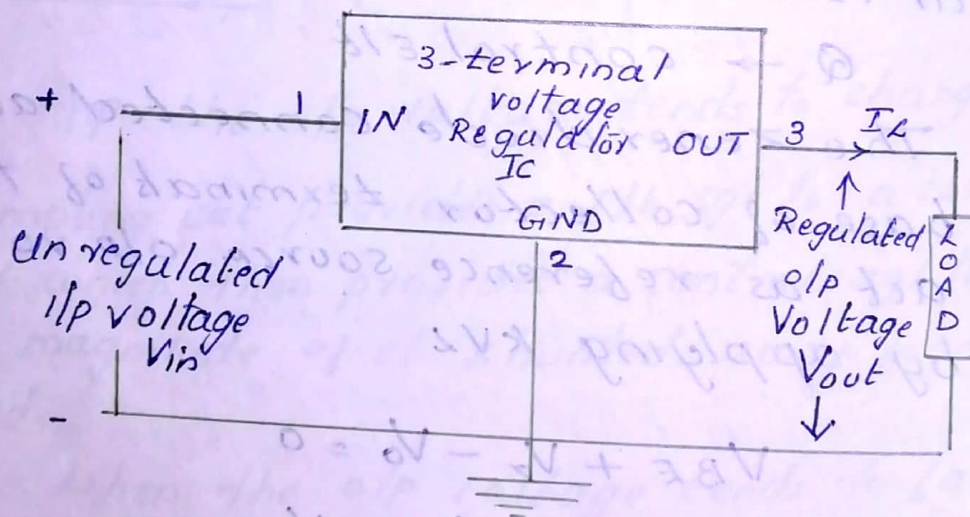 3-terminal
voltage
+ 1 IN Regulator OUT 3 IL
IC
GND
2
Unregulated
I/p voltage
Vin
-
Regulated
o/p
Voltage
Vout
LOAD